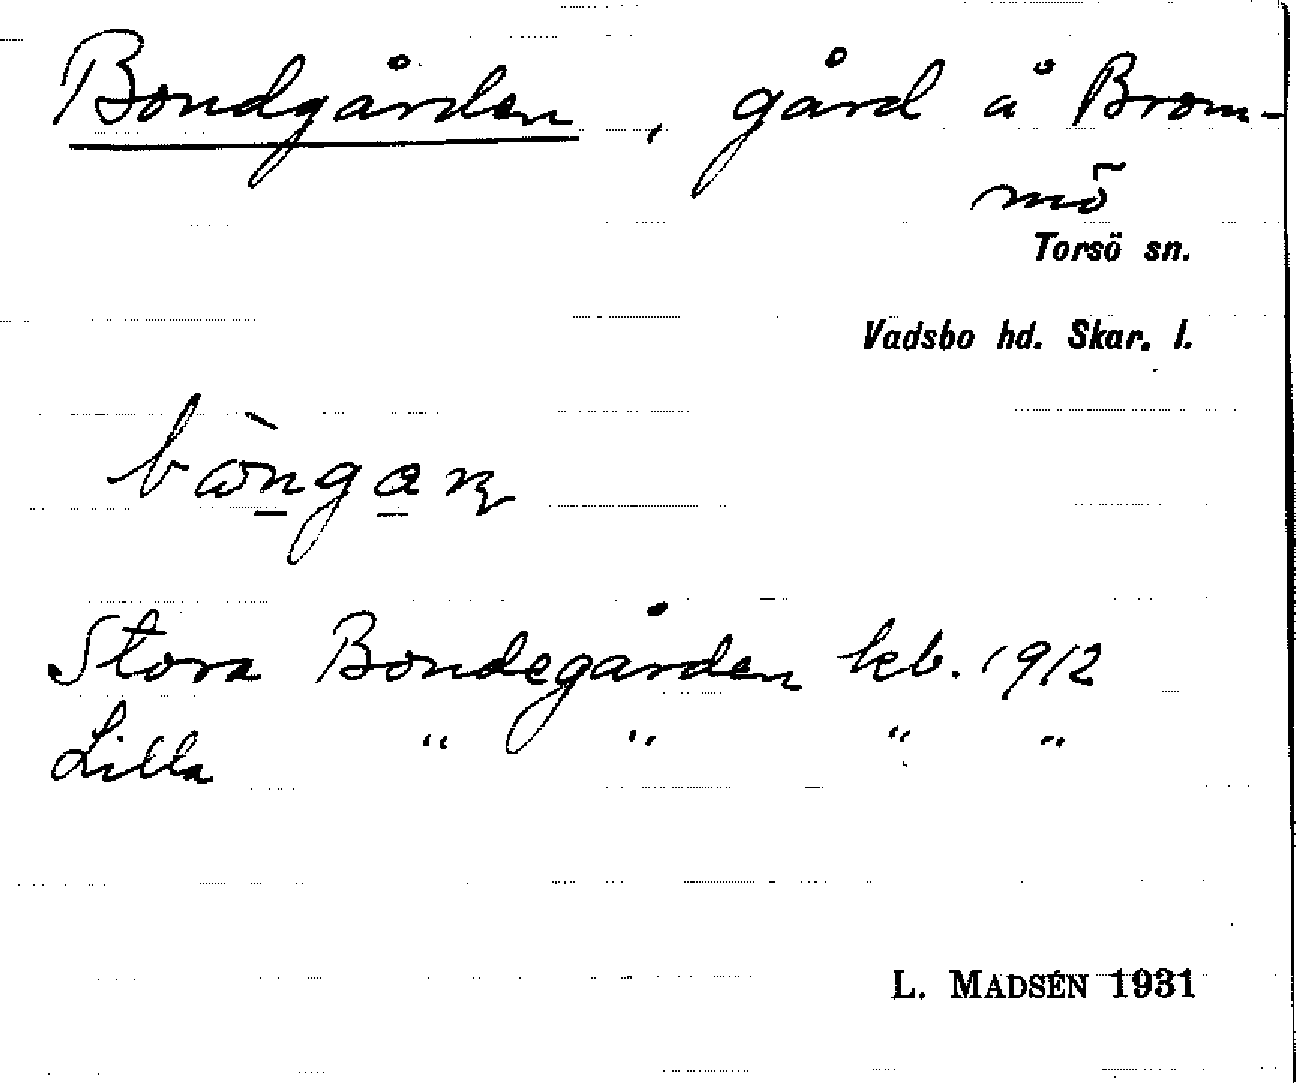 Bondgården, gård å Brom-
mö
Torsö sn.
Vadsbo hd. Skar. l.
Stora Bondegården kb. 1912
Lilla " " " "
L. MADSÉN 1931